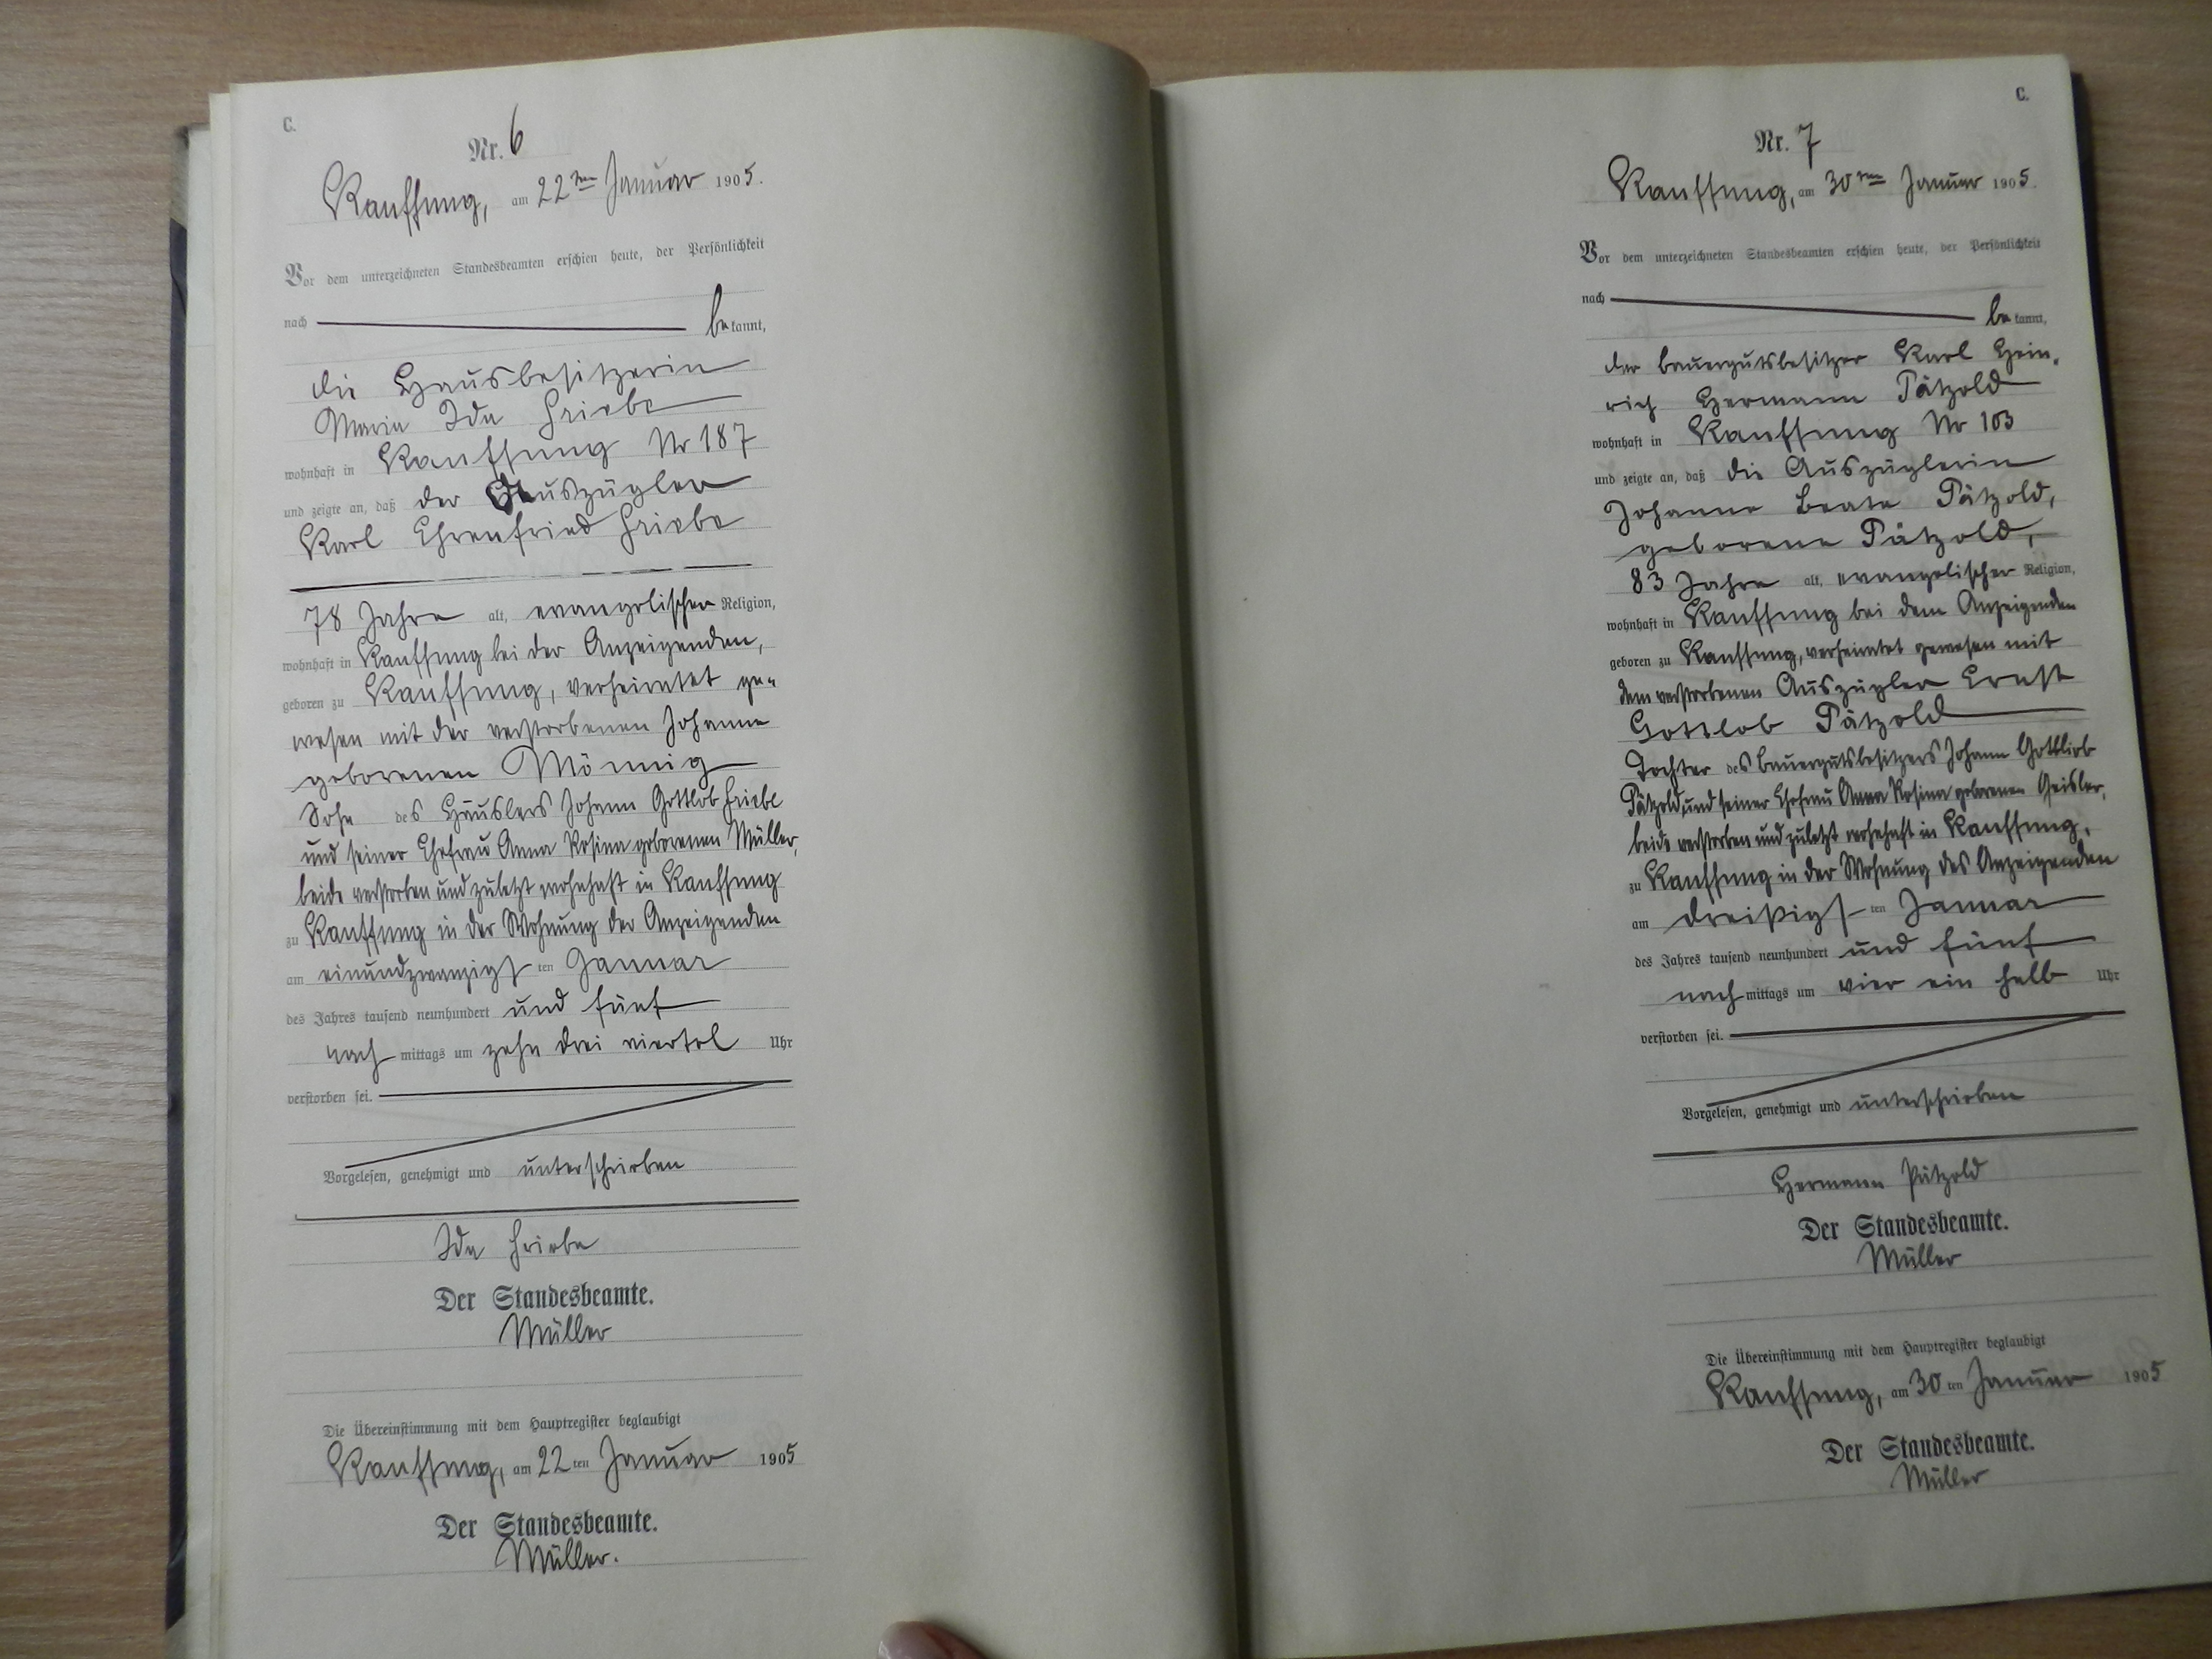 C.
Nr. 6
Kauffung, am 22ten Januar 1905.
Vor dem unterzeichneten Standesbeamten erschien heute, der Persönlichkeit
nach bekannt,
die Hausbesitzerin
Marie Ida Friebe
wohnhaft in Kauffung Nr 187
und zeigte an, daß der Auszügler
Karl Ehrenfried Friebe
78 Jahre alt, evangelischer Religion,
wohnhaft in Kauffung bei der Anzeigenden,
geboren zu Kauffung, verheiratet ge-
wesen mit der verstorbenen Johanne
geborenen Männig
Sohn des Häuslers Johann Gottlob Friebe
und seiner Ehefrau Anna Rosina geborenen Müller,
beide verstorben und zuletzt wohnhaft in Kauffung
zu Kauffung in der Wohnung der Anzeigenden
am einundzwanzigsten Januar
des Jahres tausend neunhundert und fünf
nachmittags um zehn drei viertel Uhr
verstorben sei.
Vorgelesen, genehmigt und unterschrieben
Ida Friebe
Der Standesbeamte.
Müller
Die Übereinstimmung mit dem Hauptregister beglaubigt
Kauffung, am 22ten Januar 1905
Der Standesbeamte.
Müller.
C.
Nr. 7
Kauffung, am 30ten Januar 1905.
Vor dem unterzeichneten Standesbeamten erschien heute, der Persönlichkeit
nach bekannt,
der Bauergutsbesitzer Karl Hein-
rich Hermann Pätzold
wohnhaft in Kauffung Nr 103
und zeigte an, daß die Auszüglerin
Johanne Beate Pätzold,
geborene Pätzold,
83 Jahre alt, evangelischer Religion,
wohnhaft in Kauffung bei dem Anzeigenden
geboren zu Kauffung, verheiratet gewesen mit
dem verstorbenen Auszügler Ernst
Gottlob Pätzold
Tochter des Bauergutsbesitzers Johann Gottlieb
Pätzold, und seiner Ehefrau Anna Rosina geborenen Geisler,
beide verstorben und zuletzt wohnhaft in Kauffung,
zu Kauffung in der Wohnung des Anzeigenden
am dreißigsten Januar
des Jahres tausend neunhundert und fünf
nachmittags um vier ein halb Uhr
verstorben sei.
Vorgelesen, genehmigt und unterschrieben
Hermann Pätzold
Der Standesbeamte.
Müller
Die Übereinstimmung mit dem Hauptregister beglaubigt
Kauffung, am 30ten Januar 1905
Der Standesbeamte.
Müller